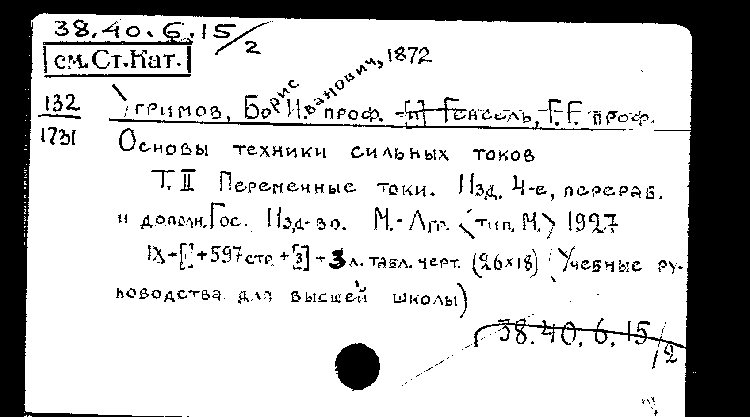 38.40.6.15/2
см. Ст. Кат.
132
1731
Угримов, Борис Иванович, 1872 проф. [и] Гензель, Г.Г. проф.
Основы техники сильных токов
Т. II Переменные токи. Изд. 4-е, перераб.
и дополн. Гос. Изд-во. М.-Лгр. <тип. М.> 1927
IX+[1]+597 стр. +[3]+3 л. табл. черт. (26×18) (Учебные ру-
ководства для высшей школы)
38.40.6.15/2